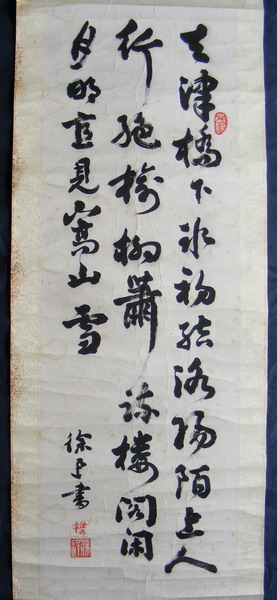 天津橋下冰初結洛陽陌上人
行絕榆柳蕭疏樓閣閑
月明直見嵩山雪
徐書